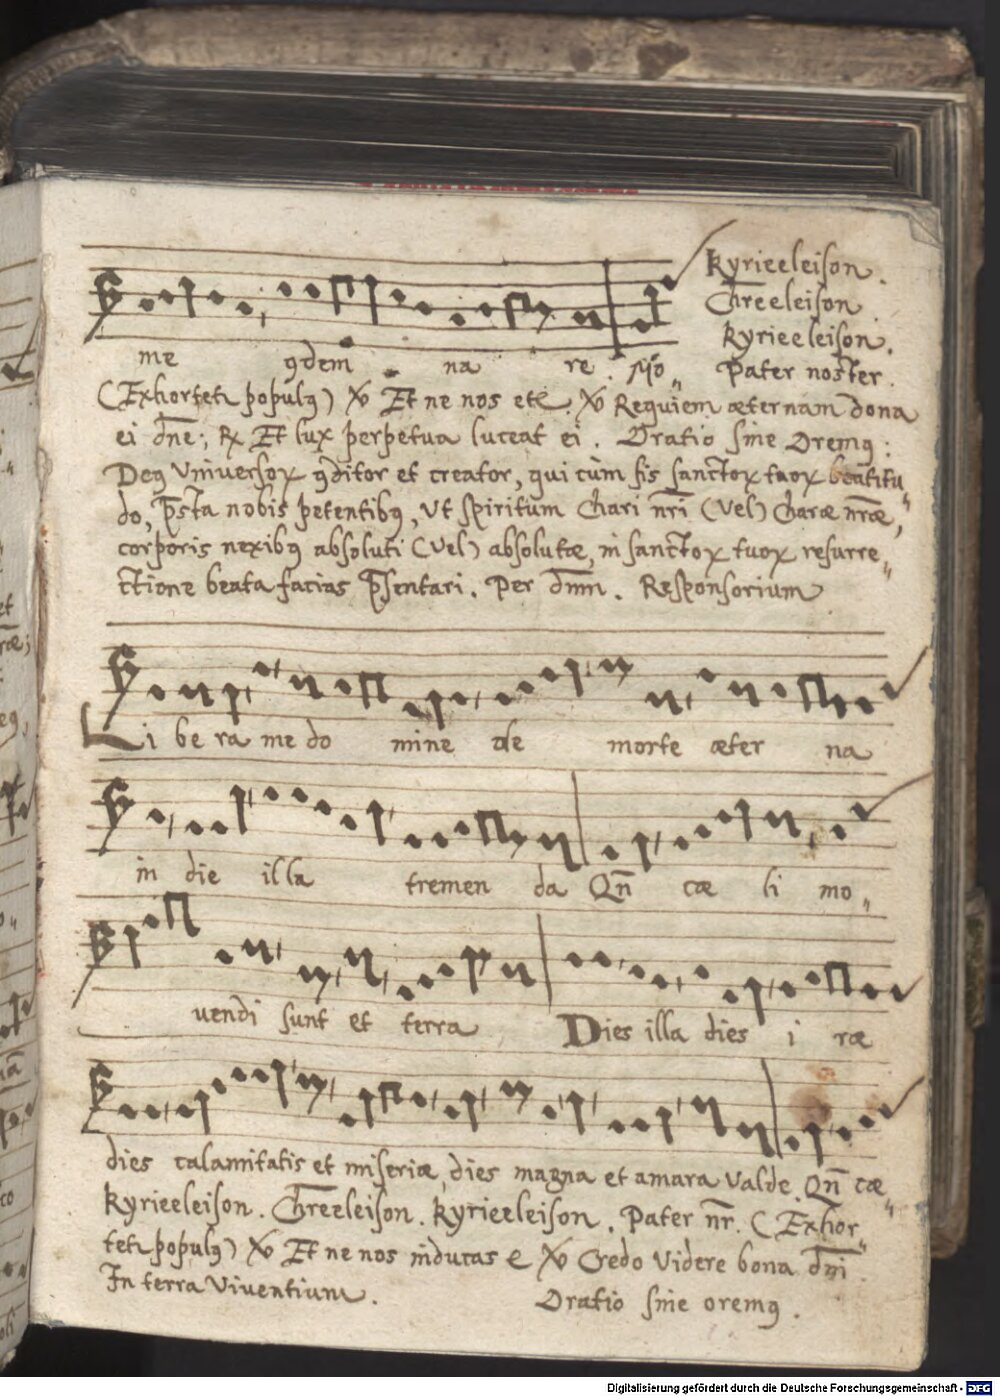 kyrieeleison.
Chreeleison
kyrieeleison.
me 9dem na re. Pater noster.
(Exhortetr populus) V Et ne nos etc. V Requiem æternam dona
ei dn̄e; R Et lux perpetua luceat ei. Oratio sine Oremus:
Deus Universoꝝ 9ditor et creator, qui cùm sis sanctoꝝ tuoꝝ beatitu„
do, p̄sta nobis petentibus, Ut spiritum Chari nr̄i (Vel) Charæ nr̄æ,
corporis nexibus absoluti (Vel) absolutæ, in sanctoꝝ tuoꝝ resurre„
ctione beata facias p̄sentari. Per dn̄m. Responsorium
Libera me domine de morte æterna
in die illa tremenda Qn̄ cæli mo„
vendi sunt et terra Dies illa dies iræ
dies calamitatis et miseriæ, dies magna et amara valde. Qn̄ cæ„
kyrieeleison. Chr̄eeleison. kyrieeleison. Pater nr̄. (Exhor„
tetr populus) V Et ne nos inducas e V Credo Videre bona dn̄i
In terra Viventium. Oratio sine oremus.